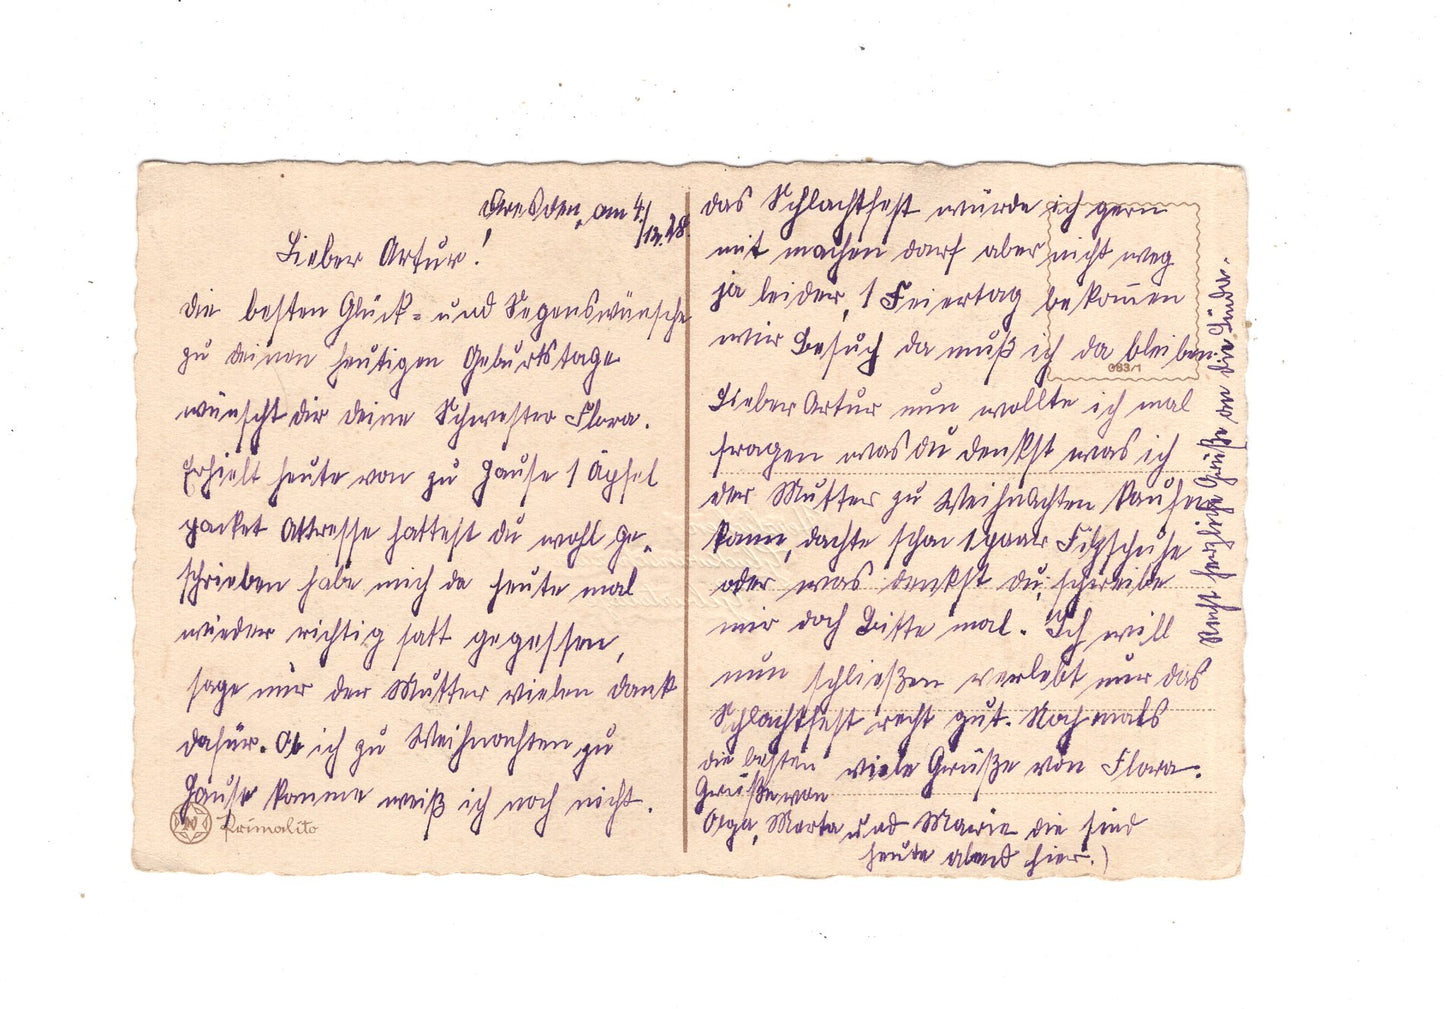 Dresden, am 4./12.28.
Lieber Artur!
Die besten Glück- und Segenswünsche
zu deinen heutigen Geburtstage
wünscht dir deine Schwester Flora.
Erhielt heute von zu Hause 1 Äpfel
packet Adresse hattest du wohl ge-
schrieben habe mich da heute mal
wieder richtig satt gegessen,
sage nur der Mutter vielen dank
dafür. Ob ich zu Weihnachten zu
Hause komme weiß ich noch nicht.
Primalito
das Schlachtfest würde ich gern
mit machen darf aber nicht weg
ja leider, 1 Feiertag bekom̄en
wir Besuch da muß ich da bleiben.
083/1
Lieber Artur nun wollte ich mal
fragen was du denkst was ich
der Mutter zu Weihnachten kaufen
kann, dachte schon 1 paar Filzschuhe
oder was denkst du, schreibe
mir doch Bitte mal. Ich will
nun schließen verlebt nur das
Schlachtfest recht gut. Nochmals
die besten viele Grüße von Flora.
Grüße von
Olga, Marta und Marie die sind
heute abend hier.)
Recht herzliche Grüße an die